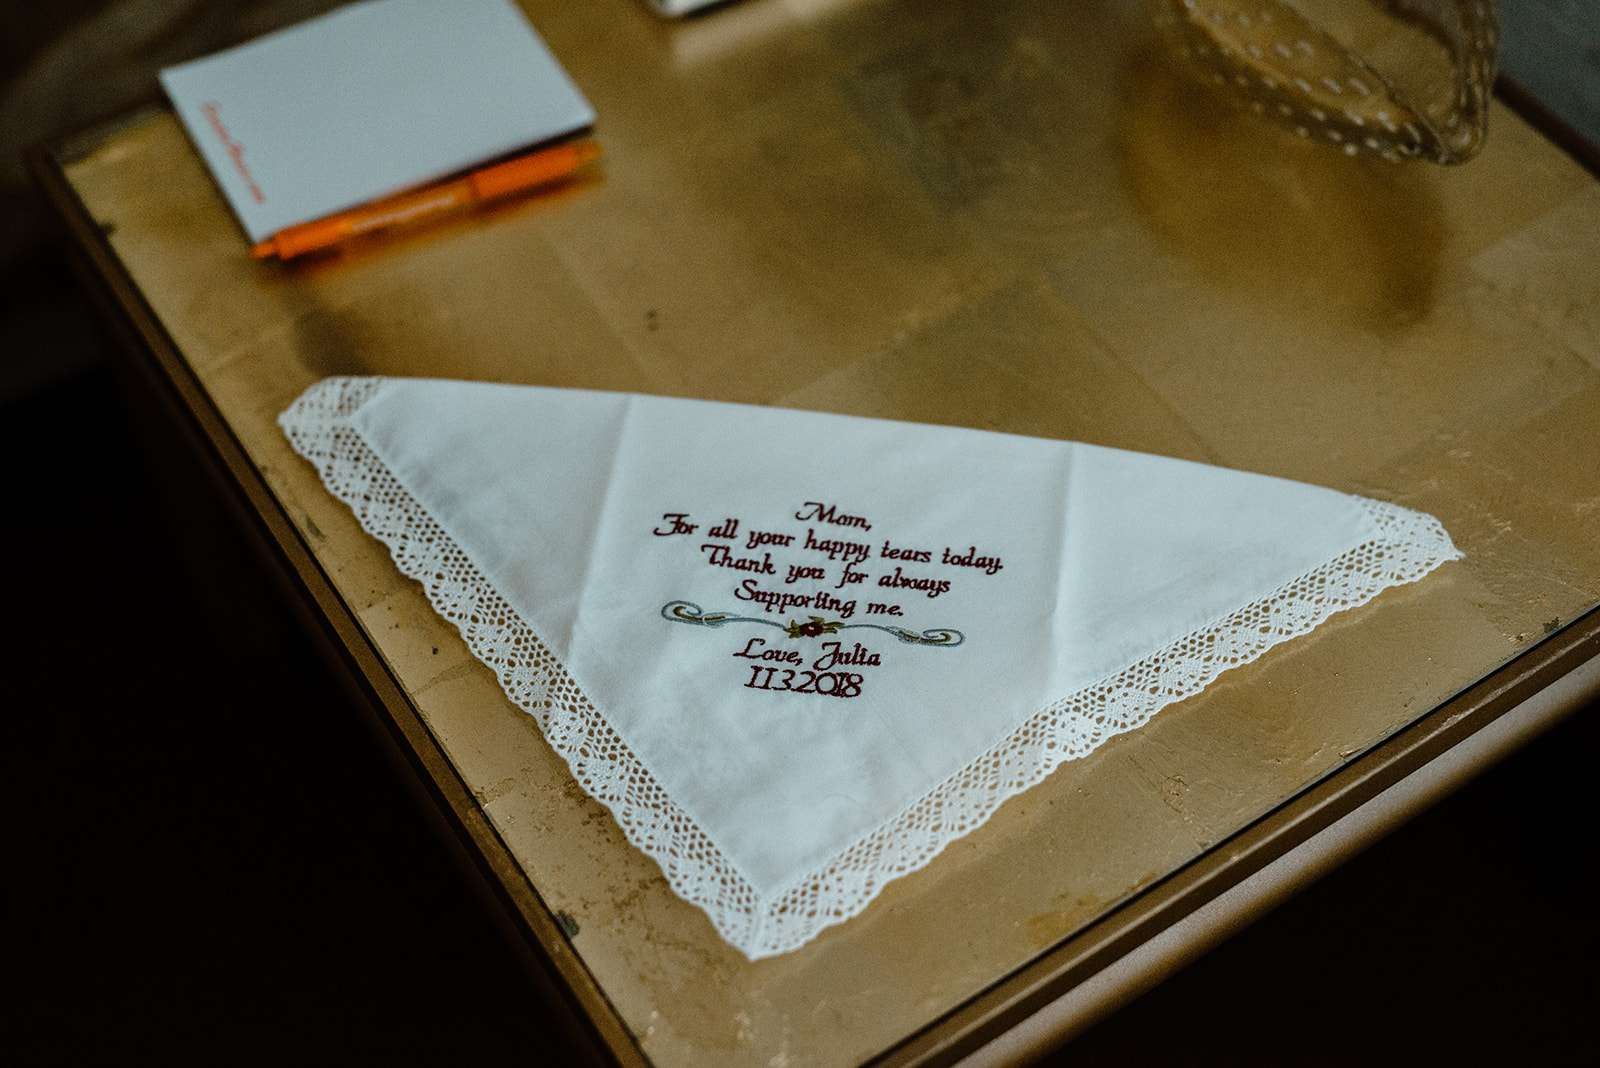 Mom,
For all your happy tears today.
Thank you for always
Supporting me.
Love, Julia
1132018